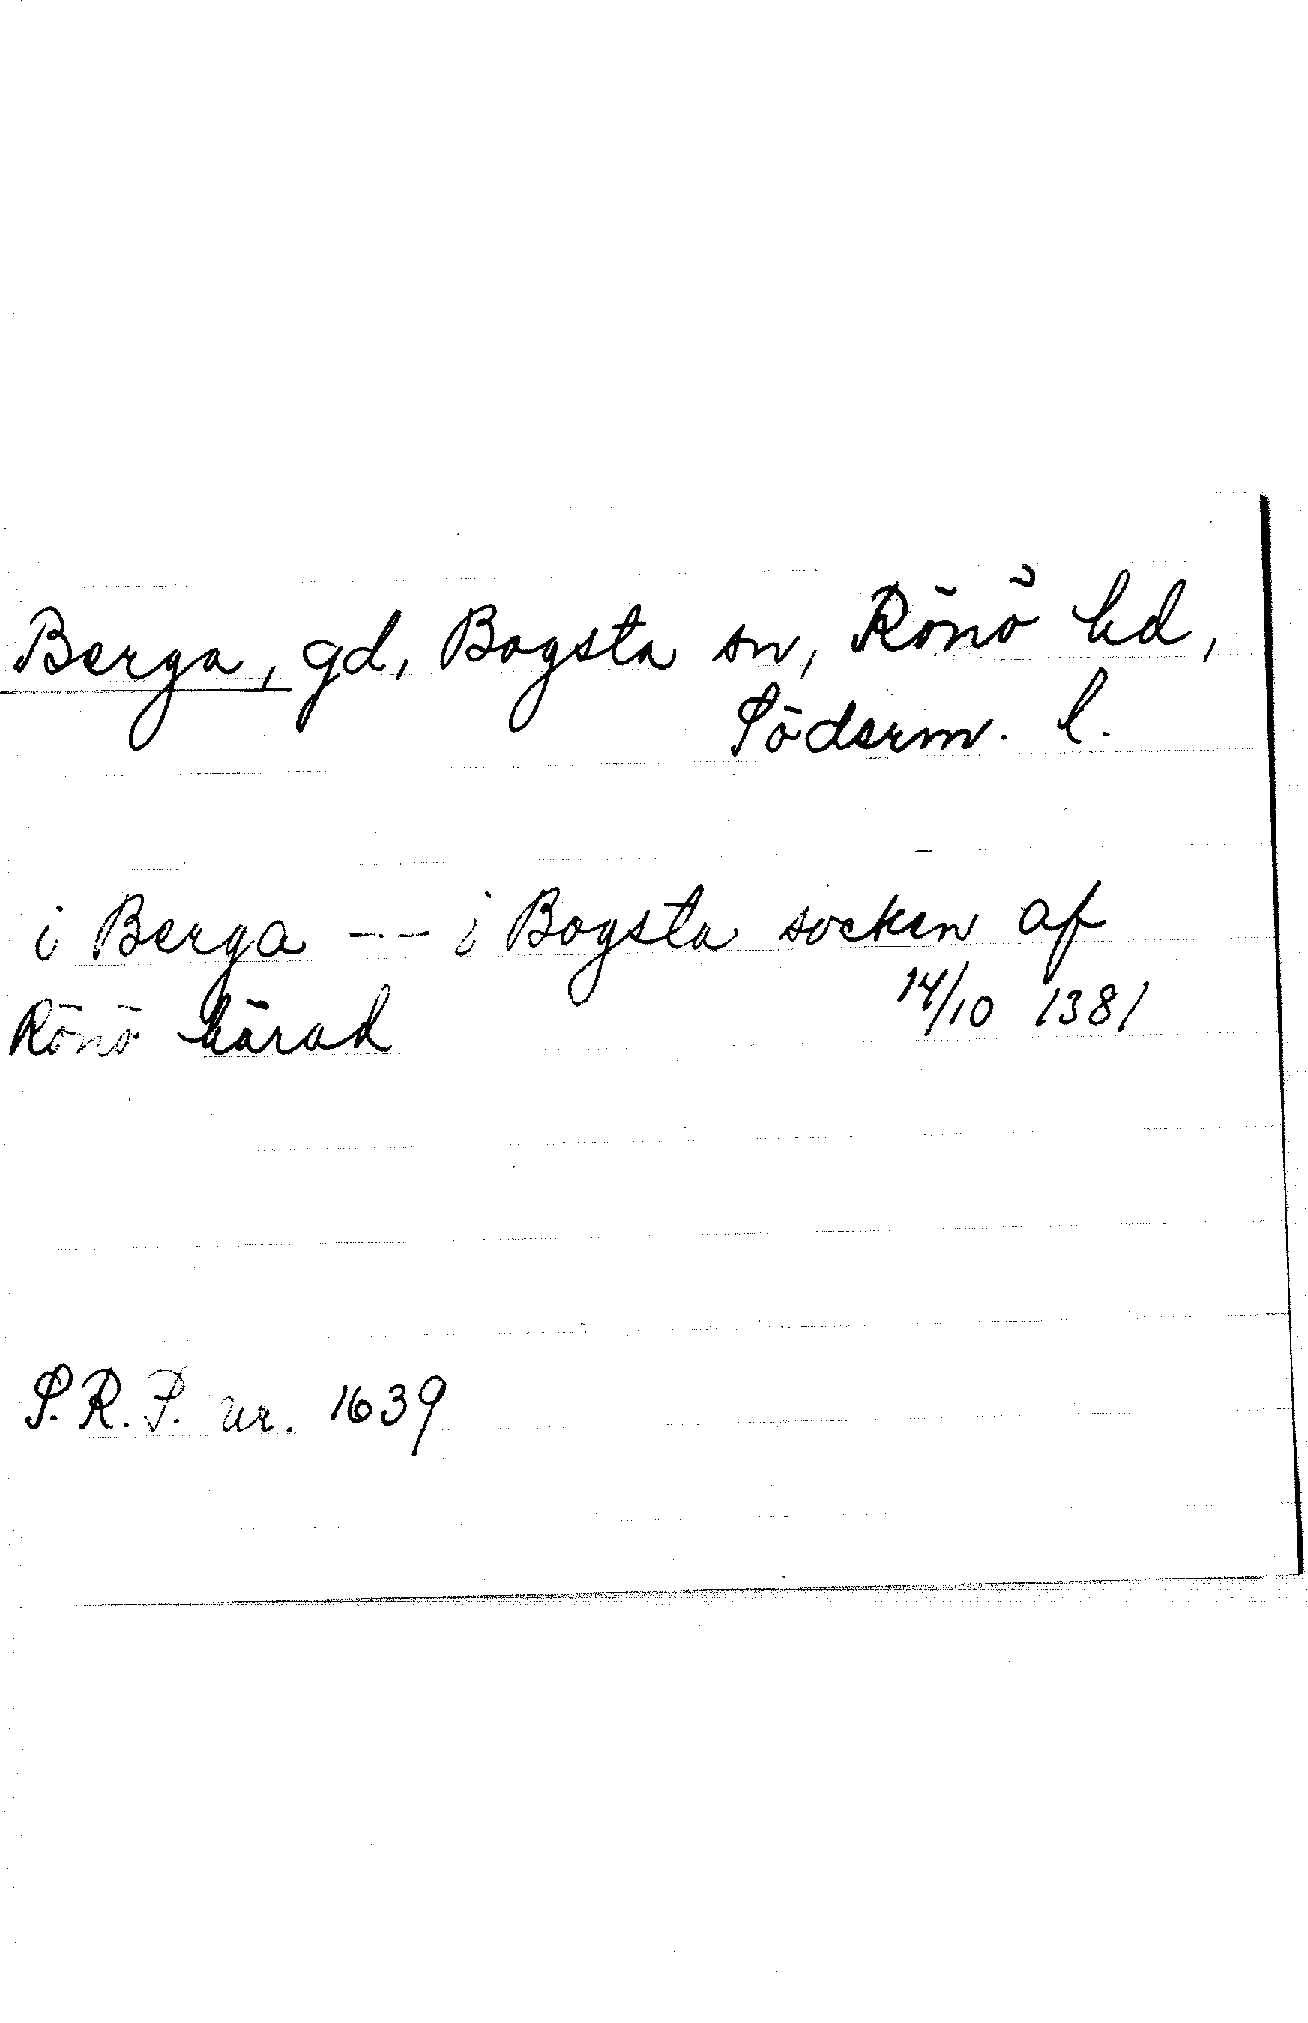 Berga, gd, Bogsta sn, Rönö hd,
Söderm. l.
i Berga --- i Bogsta socken af
Rönö härad 14/10 1381
S.R.P. nr. 1639